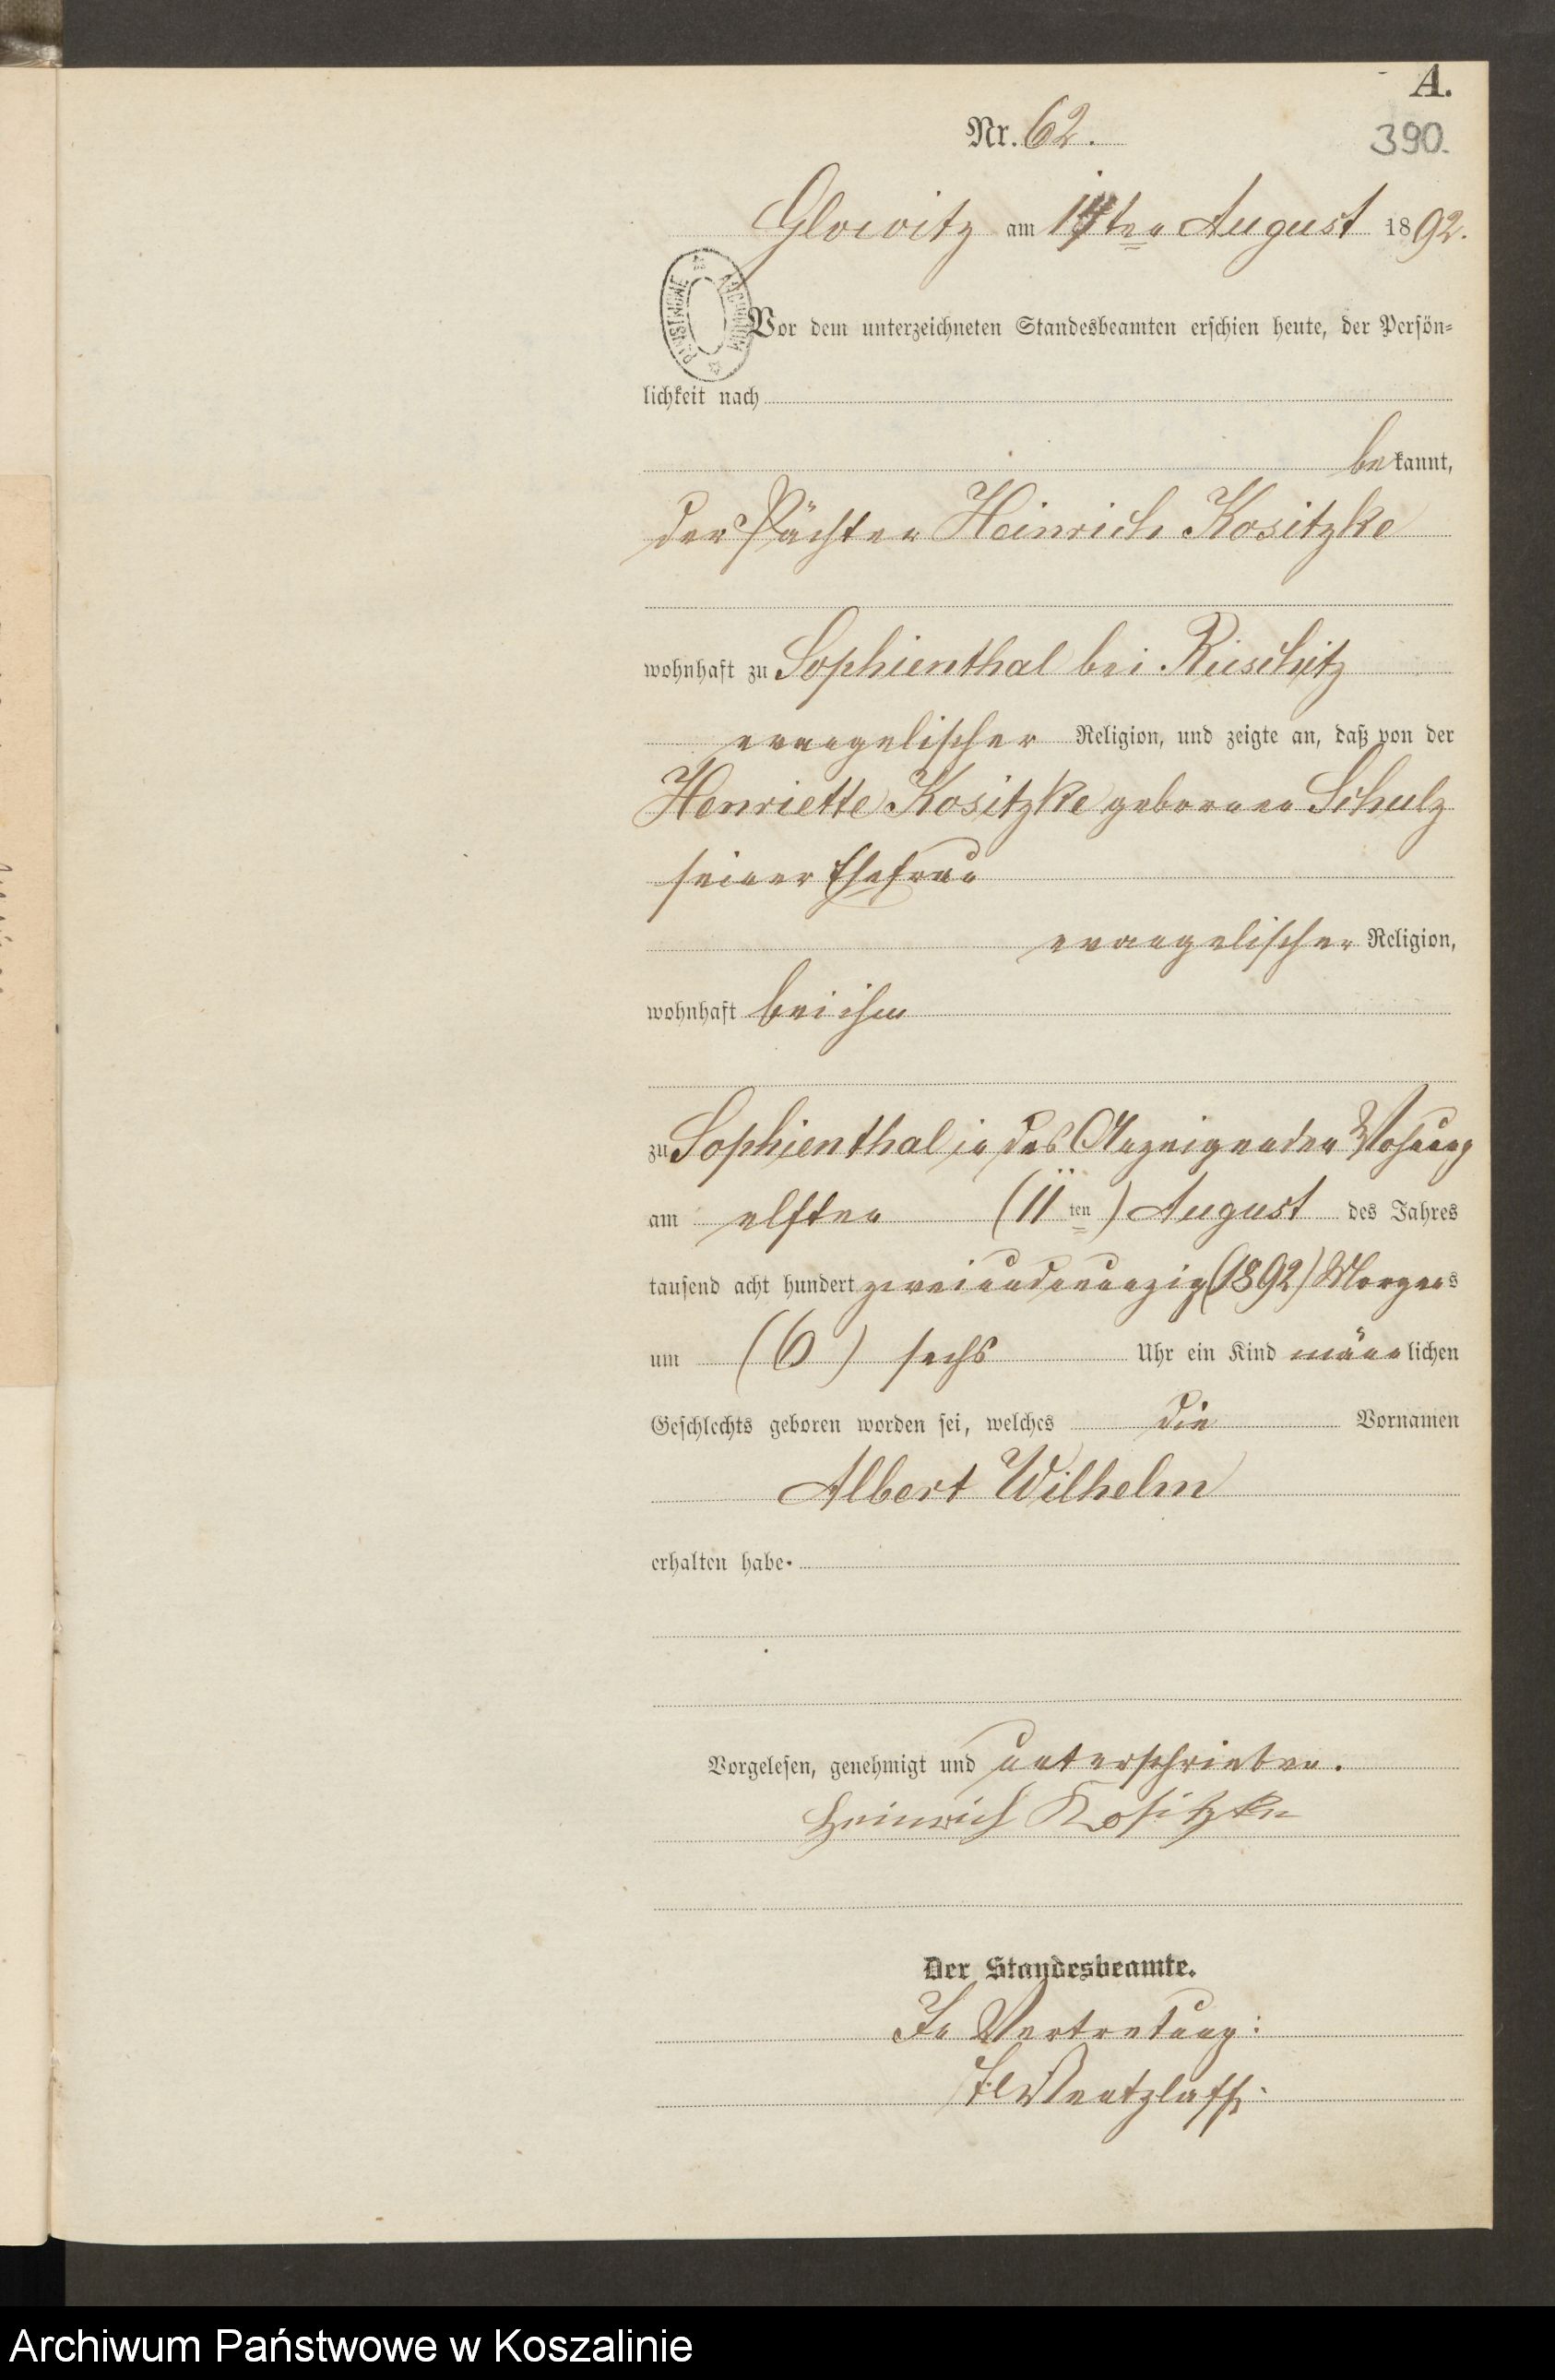 A.
Nr. 62.
390.
Glowitz am ten August 1892.
PAŃSTWOWE ARCHIWUM
Vor dem unterzeichneten Standesbeamten erschien heute, der Persön=
lichkeit nach
bekannt,
der Pächter Heinrich Kositzke
wohnhaft zu Sophienthal bei Ruschitz
evangelischer Religion, und zeigte an, daß von der
Henriette Kositzke geborenen Schulz
seiner Ehefrau
evangelischer Religion,
wohnhaft bei ihm
zu Sophienthal in des Anzeigenden Wohnung
am elften (11ten) August des Jahres
tausend acht hundert zweiundneunzig (1892) Morgens
um (6) sechs Uhr ein Kind männlichen
Geschlechts geboren worden sei, welches die Vornamen
Albert Wilhelm
erhalten habe.
Vorgelesen, genehmigt und unterschrieben.
Heinrich Kositzke
Der Standesbeamte.
In Vertretung:
Wentzlaff.
Archiwum Państwowe w Koszalinie